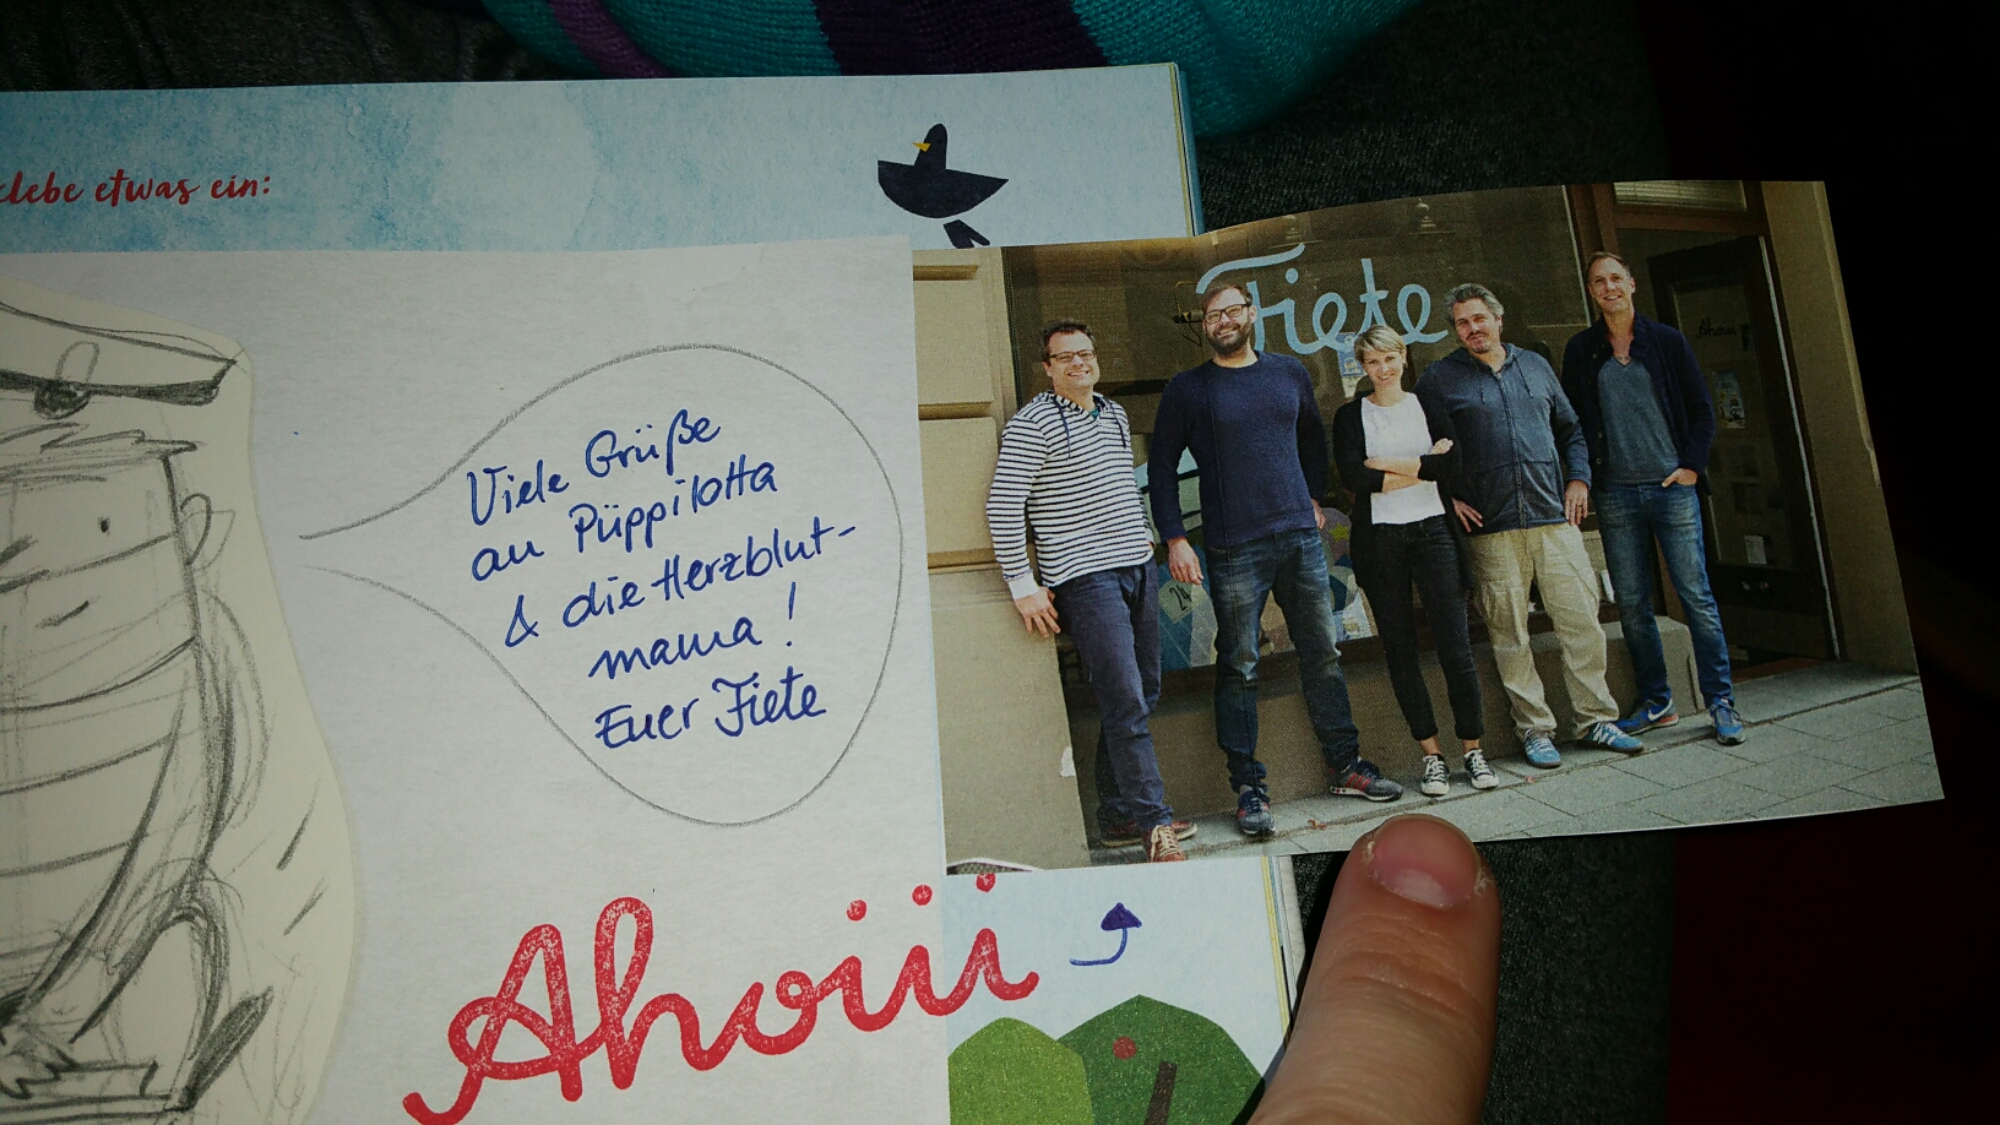 klebe etwas ein:
Viele Grüße
an Püppilotta
& die Herzblut-
mama!
Euer Fiete
Ahoiii
Fiete
Ahoii
24